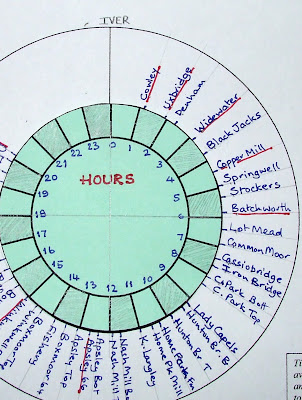 IVER
Cowley
Uxbridge
Denham
Widewater
Black Jacks
Copper Mill
Springwell
Stockers
Batchworth
Lot Mead
Common Moor
Cassiobridge
Iron Bridge
C. Park Bott
C. Park Top
Lady Capels
Hunton Br. B
Hunton Br. T
Home Park Mill
K. Langley
Nash Mill Bot
Nash Mill T
Apsley Bot
Apsley
Apsley Top
Boxmoor
Fishery
HOURS
0
1
2
3
4
5
6
7
8
9
10
11
12
13
14
15
16
17
18
19
20
21
22
23
Ti